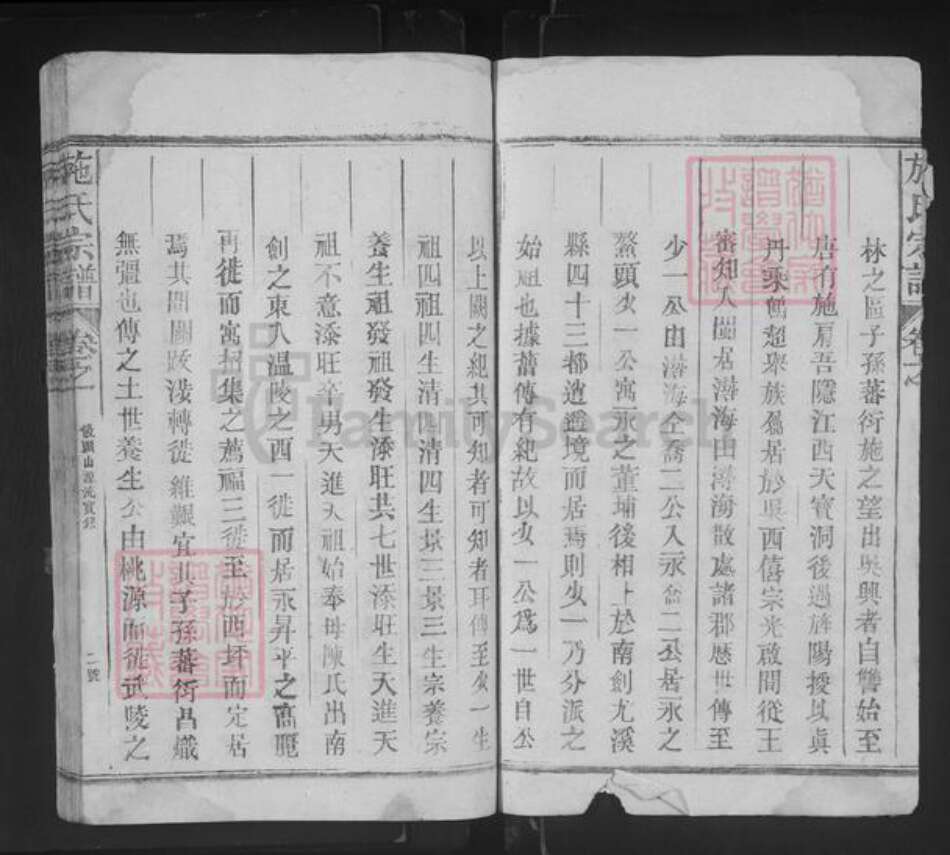 施氏宗譜 卷之
林之區子孫蕃衍施之望出吳興者自讐始至
唐有施肩吾隱江西天寳洞後遇旌陽授以眞
丹乘鶴超舉族屬居於吳西僖宗光啟間從王
審知入閩居潯海由潯海散處諸郡歷世傳至
少一公由潯海仝喬二公入永仝二公居永之
鰲頭少一公寓永之董埔後相卜於南劍尤溪
縣四十三都逍遥境而居焉則少一乃分派之
始祖也據舊傳有紀故以少一公爲一世自公
以上闕之紀其可知者可知者耳傳至少一生
祖四祖四生清四清四生景三景三生宗養宗
養生祖發祖發生添旺共七世添旺生天進天
祖不意添旺卒男天進天祖始奉母陳氏出南
劍之東入溫陵之西一徙而居永昇平之髙麗
再徙而寓 集之薦福三徙至於西坪而定居
焉其間關跋涉轉徙維艱宜其子孫蕃衍昌熾
無彊也傳之土世養生公由桃源而徙武陵之
施氏宗譜
卷之
山源流實錄
二號
FamilySearch